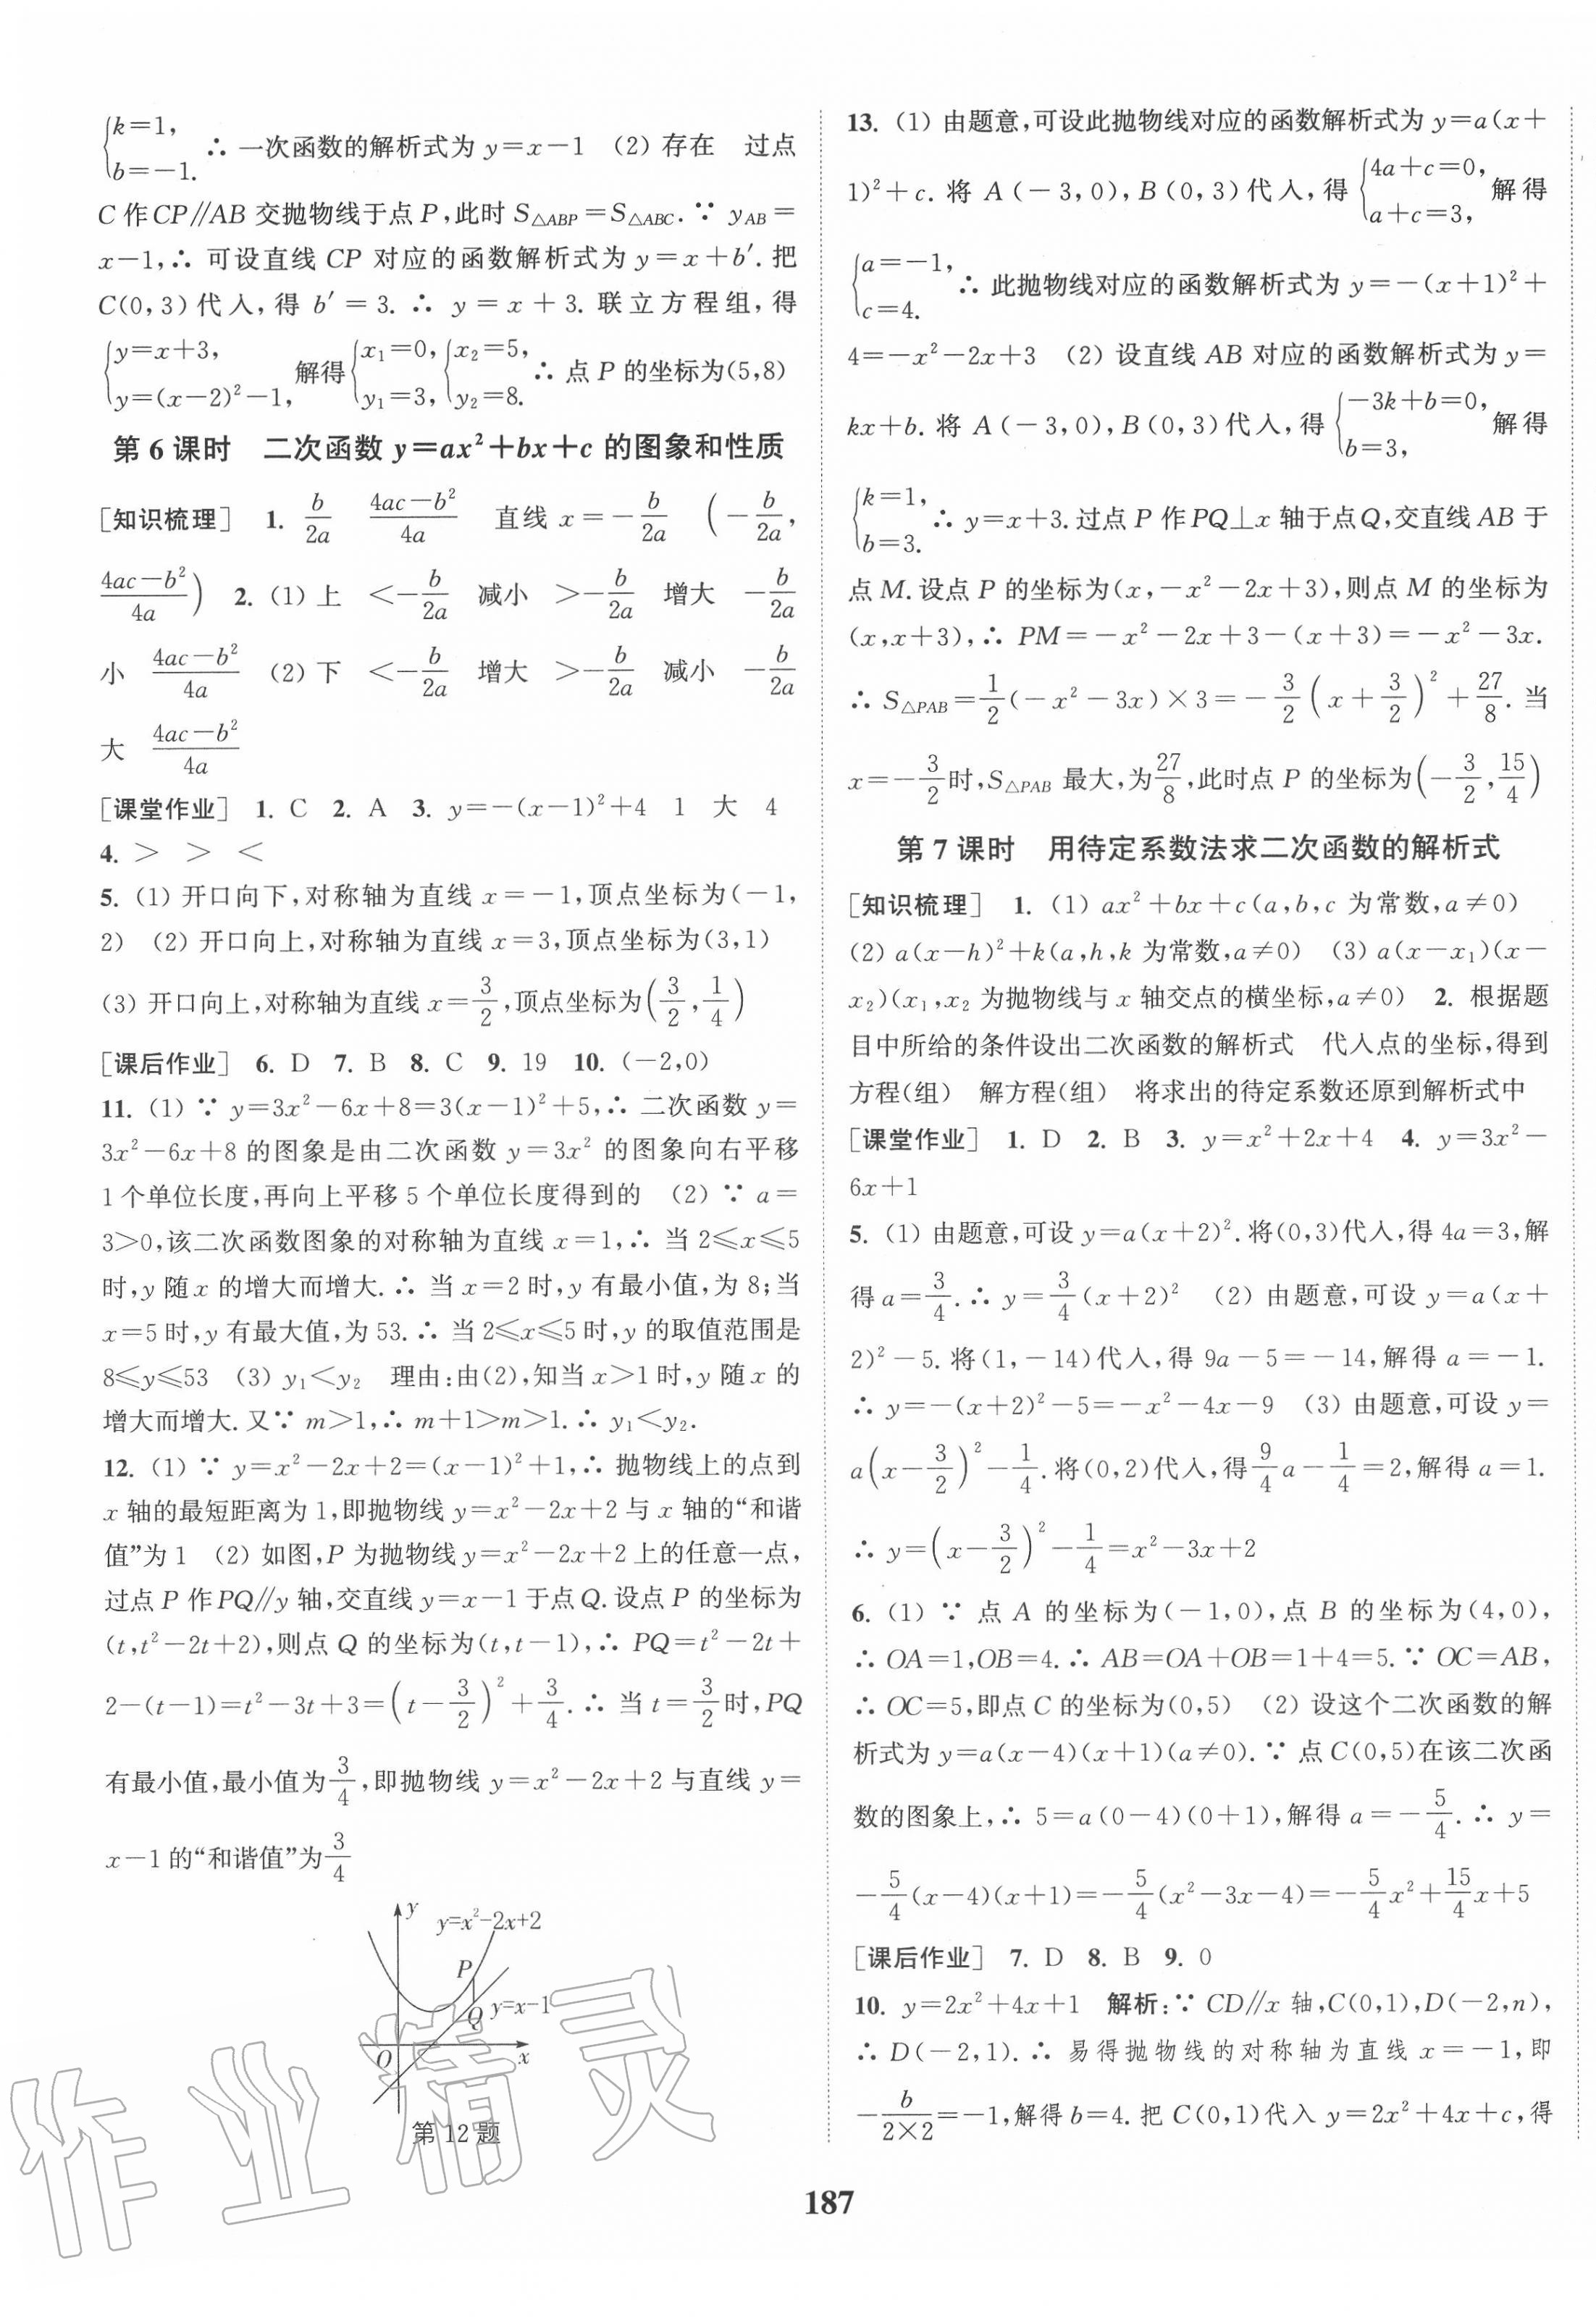 {k=1, b=-1. ∴ 一次函数的解析式为 y=x-1 (2) 存在 过点
C 作 CP∥AB 交抛物线于点 P,此时 S△ABP=S△ABC. ∵ yAB=
x-1,∴ 可设直线 CP 对应的函数解析式为 y=x+b′. 把
C(0,3)代入,得 b′=3. ∴ y=x+3. 联立方程组,得
{y=x+3, y=(x-2)²-1, 解得 {x₁=0, y₁=3, {x₂=5, y₂=8. ∴ 点 P 的坐标为(5,8)
第 6 课时 二次函数 y=ax²+bx+c 的图象和性质
[知识梳理] 1. b/2a (4ac-b²)/4a 直线 x=-b/2a (-b/2a,
(4ac-b²)/4a) 2. (1) 上 <-b/2a 减小 >-b/2a 增大 -b/2a
小 (4ac-b²)/4a (2) 下 <-b/2a 增大 >-b/2a 减小 -b/2a
大 (4ac-b²)/4a
[课堂作业] 1. C 2. A 3. y=-(x-1)²+4 1 大 4
4. > > <
5. (1) 开口向下,对称轴为直线 x=-1,顶点坐标为(-1,
2) (2) 开口向上,对称轴为直线 x=3,顶点坐标为(3,1)
(3) 开口向上,对称轴为直线 x=3/2,顶点坐标为(3/2,1/4)
[课后作业] 6. D 7. B 8. C 9. 19 10. (-2,0)
11. (1) ∵ y=3x²-6x+8=3(x-1)²+5,∴ 二次函数 y=
3x²-6x+8 的图象是由二次函数 y=3x² 的图象向右平移
1 个单位长度,再向上平移 5 个单位长度得到的 (2) ∵ a=
3>0,该二次函数图象的对称轴为直线 x=1,∴ 当 2≤x≤5
时,y 随 x 的增大而增大. ∴ 当 x=2 时,y 有最小值,为 8;当
x=5 时,y 有最大值,为 53. ∴ 当 2≤x≤5 时,y 的取值范围是
8≤y≤53 (3) y₁<y₂ 理由:由(2),知当 x>1 时,y 随 x 的
增大而增大. 又∵ m>1,∴ m+1>m>1. ∴ y₁<y₂.
12. (1) ∵ y=x²-2x+2=(x-1)²+1,∴ 抛物线上的点到
x 轴的最短距离为 1,即抛物线 y=x²-2x+2 与 x 轴的“和谐
值”为 1 (2) 如图,P 为抛物线 y=x²-2x+2 上的任意一点,
过点 P 作 PQ∥y 轴,交直线 y=x-1 于点 Q. 设点 P 的坐标为
(t,t²-2t+2),则点 Q 的坐标为(t,t-1),∴ PQ=t²-2t+
2-(t-1)=t²-3t+3=(t-3/2)²+3/4. ∴ 当 t=3/2 时,PQ
有最小值,最小值为3/4,即抛物线 y=x²-2x+2 与直线 y=
x-1 的“和谐值”为3/4
y
y=x²-2x+2
P
Q
y=x-1
O
x
第 12 题
13. (1) 由题意,可设此抛物线对应的函数解析式为 y=a(x+
1)²+c. 将 A(-3,0),B(0,3)代入,得 {4a+c=0, a+c=3, 解得
{a=-1, c=4. ∴ 此抛物线对应的函数解析式为 y=-(x+1)²+
4=-x²-2x+3 (2) 设直线 AB 对应的函数解析式为 y=
kx+b. 将 A(-3,0),B(0,3)代入,得 {-3k+b=0, b=3, 解得
{k=1, b=3. ∴ y=x+3. 过点 P 作 PQ⊥x 轴于点 Q,交直线 AB 于
点 M. 设点 P 的坐标为(x,-x²-2x+3),则点 M 的坐标为
(x,x+3),∴ PM=-x²-2x+3-(x+3)=-x²-3x.
∴ S△PAB=1/2(-x²-3x)×3=-3/2(x+3/2)²+27/8. 当
x=-3/2时,S△PAB 最大,为27/8,此时点 P 的坐标为(-3/2,15/4)
第 7 课时 用待定系数法求二次函数的解析式
[知识梳理] 1. (1) ax²+bx+c(a,b,c 为常数,a≠0)
(2) a(x-h)²+k(a,h,k 为常数,a≠0) (3) a(x-x₁)(x-
x₂)(x₁,x₂ 为抛物线与 x 轴交点的横坐标,a≠0) 2. 根据题
目中所给的条件设出二次函数的解析式 代入点的坐标,得到
方程(组) 解方程(组) 将求出的待定系数还原到解析式中
[课堂作业] 1. D 2. B 3. y=x²+2x+4 4. y=3x²-
6x+1
5. (1) 由题意,可设 y=a(x+2)². 将(0,3)代入,得 4a=3,解
得 a=3/4. ∴ y=3/4(x+2)² (2) 由题意,可设 y=a(x+
2)²-5. 将(1,-14)代入,得 9a-5=-14,解得 a=-1.
∴ y=-(x+2)²-5=-x²-4x-9 (3) 由题意,可设 y=
a(x-3/2)²-1/4. 将(0,2)代入,得9/4a-1/4=2,解得 a=1.
∴ y=(x-3/2)²-1/4=x²-3x+2
6. (1) ∵ 点 A 的坐标为(-1,0),点 B 的坐标为(4,0),
∴ OA=1,OB=4. ∴ AB=OA+OB=1+4=5. ∵ OC=AB,
∴ OC=5,即点 C 的坐标为(0,5) (2) 设这个二次函数的解
析式为 y=a(x-4)(x+1)(a≠0). ∵ 点 C(0,5)在该二次函
数的图象上,∴ 5=a(0-4)(0+1),解得 a=-5/4. ∴ y=
-5/4(x-4)(x+1)=-5/4(x²-3x-4)=-5/4x²+15/4x+5
[课后作业] 7. D 8. B 9. 0
10. y=2x²+4x+1 解析:∵ CD∥x 轴,C(0,1),D(-2,n),
∴ D(-2,1). ∴ 易得抛物线的对称轴为直线 x=-1,即
-b/(2×2)=-1,解得 b=4. 把 C(0,1)代入 y=2x²+4x+c,得
187
作业精灵